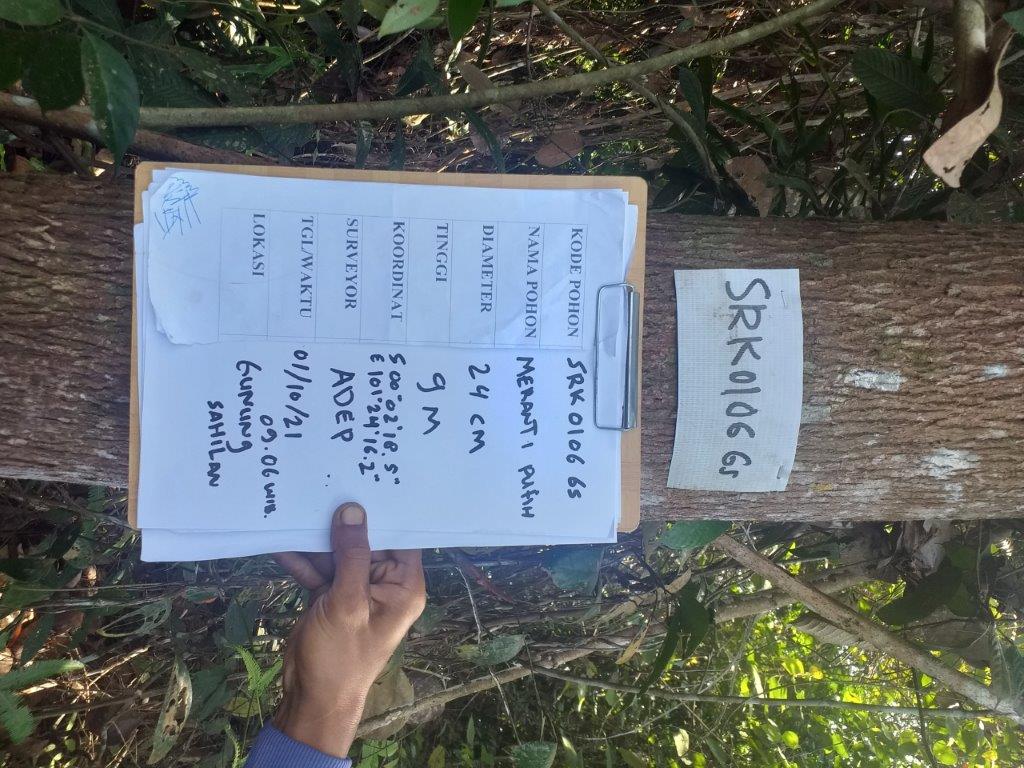 KODE POHON SRK 0106 Gs
NAMA POHON MERANTI PUTIH
DIAMETER 24 CM
TINGGI 9 M
KOORDINAT S 00°02'18.5"
E 101°24'16.2"
SURVEYOR ADEP
TGL/WAKTU 01/10/21
09.06 WIB.
LOKASI GUNUNG
SAHILAN
SRK0106 Gs